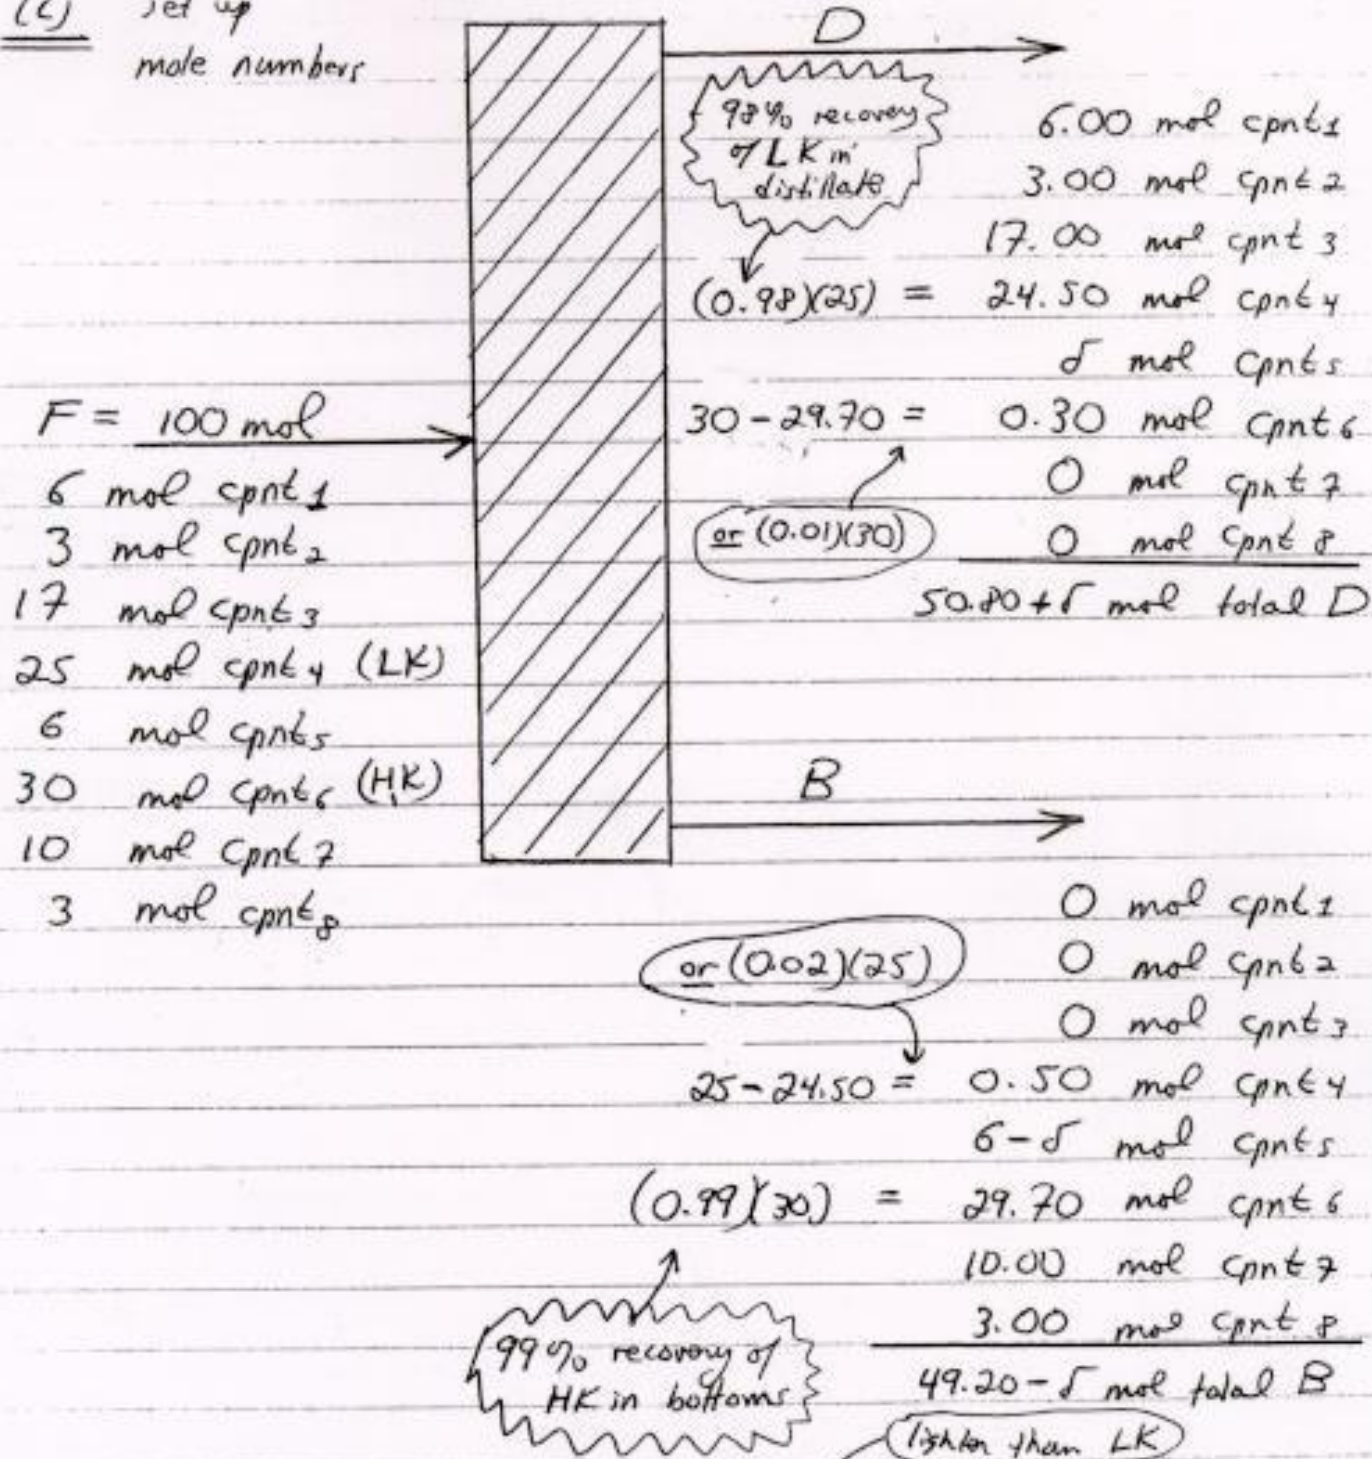 (c) set up
mole numbers
D
98% recovery
of LK in
distillate
6.00 mol cpnt 1
3.00 mol cpnt 2
17.00 mol cpnt 3
(0.98)(25) = 24.50 mol cpnt 4
δ mol cpnt 5
30 - 29.70 = 0.30 mol cpnt 6
0 mol cpnt 7
or (0.01)(30)
0 mol cpnt 8
50.80 + δ mol total D
F = 100 mol
6 mol cpnt 1
3 mol cpnt 2
17 mol cpnt 3
25 mol cpnt 4 (LK)
6 mol cpnt 5
30 mol cpnt 6 (HK)
10 mol cpnt 7
3 mol cpnt 8
B
0 mol cpnt 1
or (0.02)(25)
0 mol cpnt 2
0 mol cpnt 3
25 - 24.50 = 0.50 mol cpnt 4
6 - δ mol cpnt 5
(0.99)(30) = 29.70 mol cpnt 6
10.00 mol cpnt 7
3.00 mol cpnt 8
99% recovery of
HK in bottoms
49.20 - δ mol total B
lighter than LK